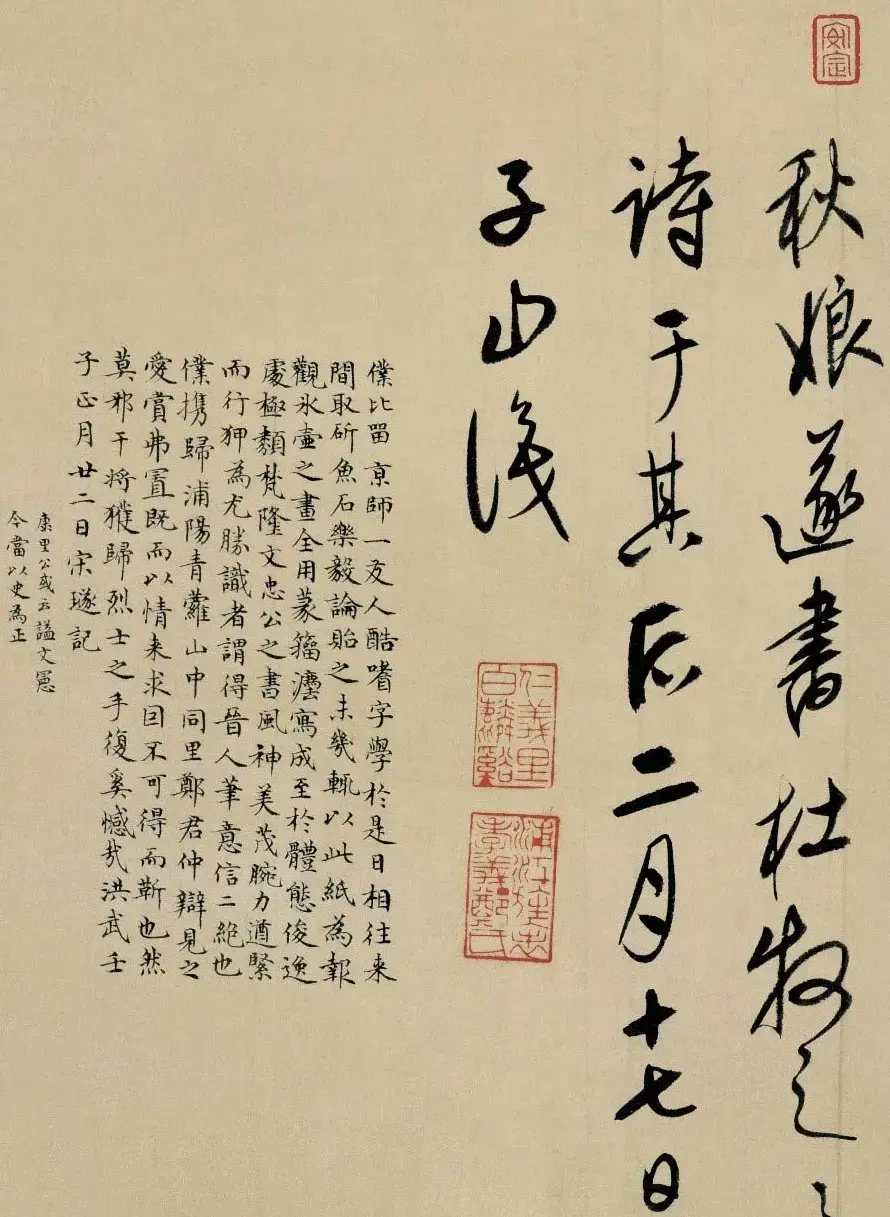 安定
秋娘遂書杜牧之
詩于其后二月十七日
子山識
仁義里
白麟谿
浦江旌忠
孝義鄭氏
僕比留京師一友人酷嗜字學於是日相往来
間取斫魚石樂毅論貽之未幾輒以此紙為報
觀氷壺之畫全用篆籀灋寫成至於體態俊逸
處極纇梵隆文忠公之書風神美茂腕力遒緊
而行狎為尤勝識者謂得晉人筆意信二絶也
僕携歸浦陽青蘿山中同里鄭君仲辯見之
愛賞弗置既而以情来求囙不可得而靳也然
莫邪干将獲歸烈士之手復奚憾哉洪武壬
子正月廿二日宋璲記
康里公或云謚文憲
今當以史為正